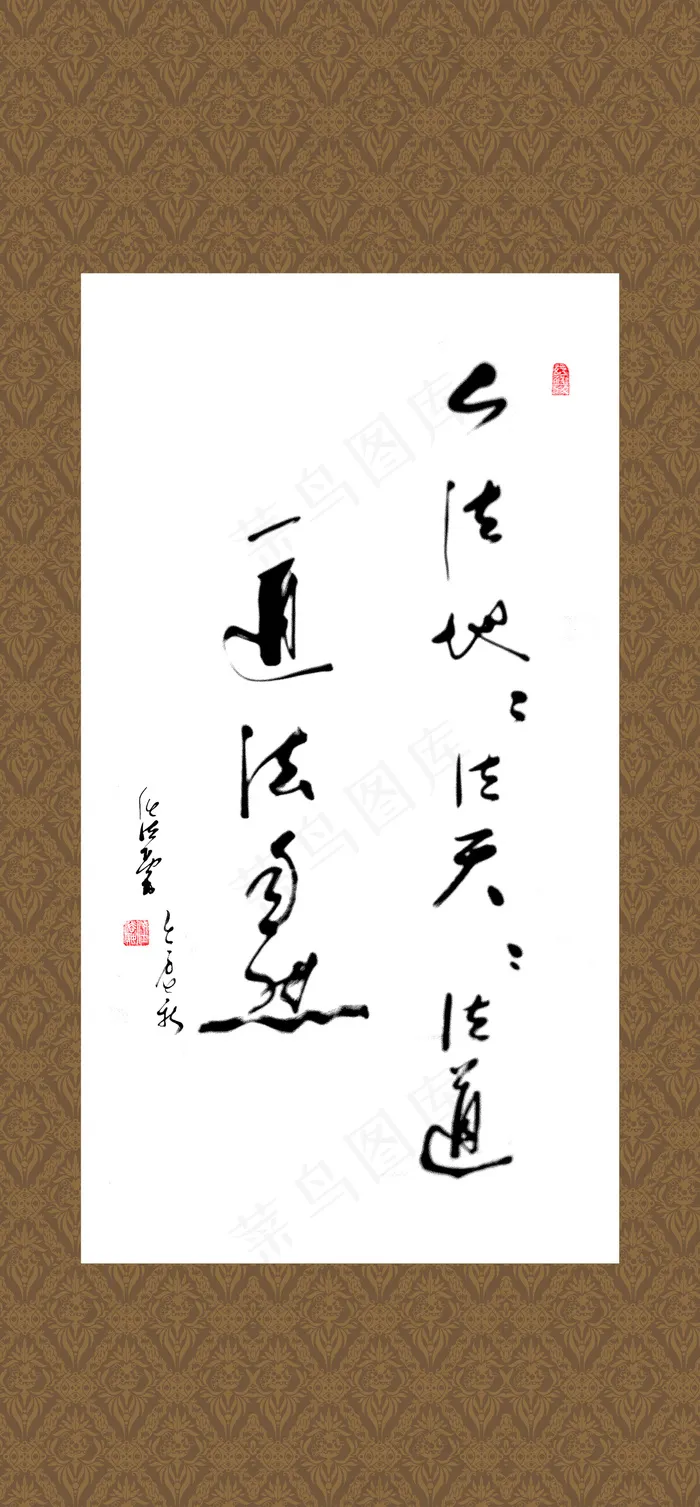 人法地〻法天〻法道
道法自然
菜鸟图库
菜鸟图库
菜鸟图库